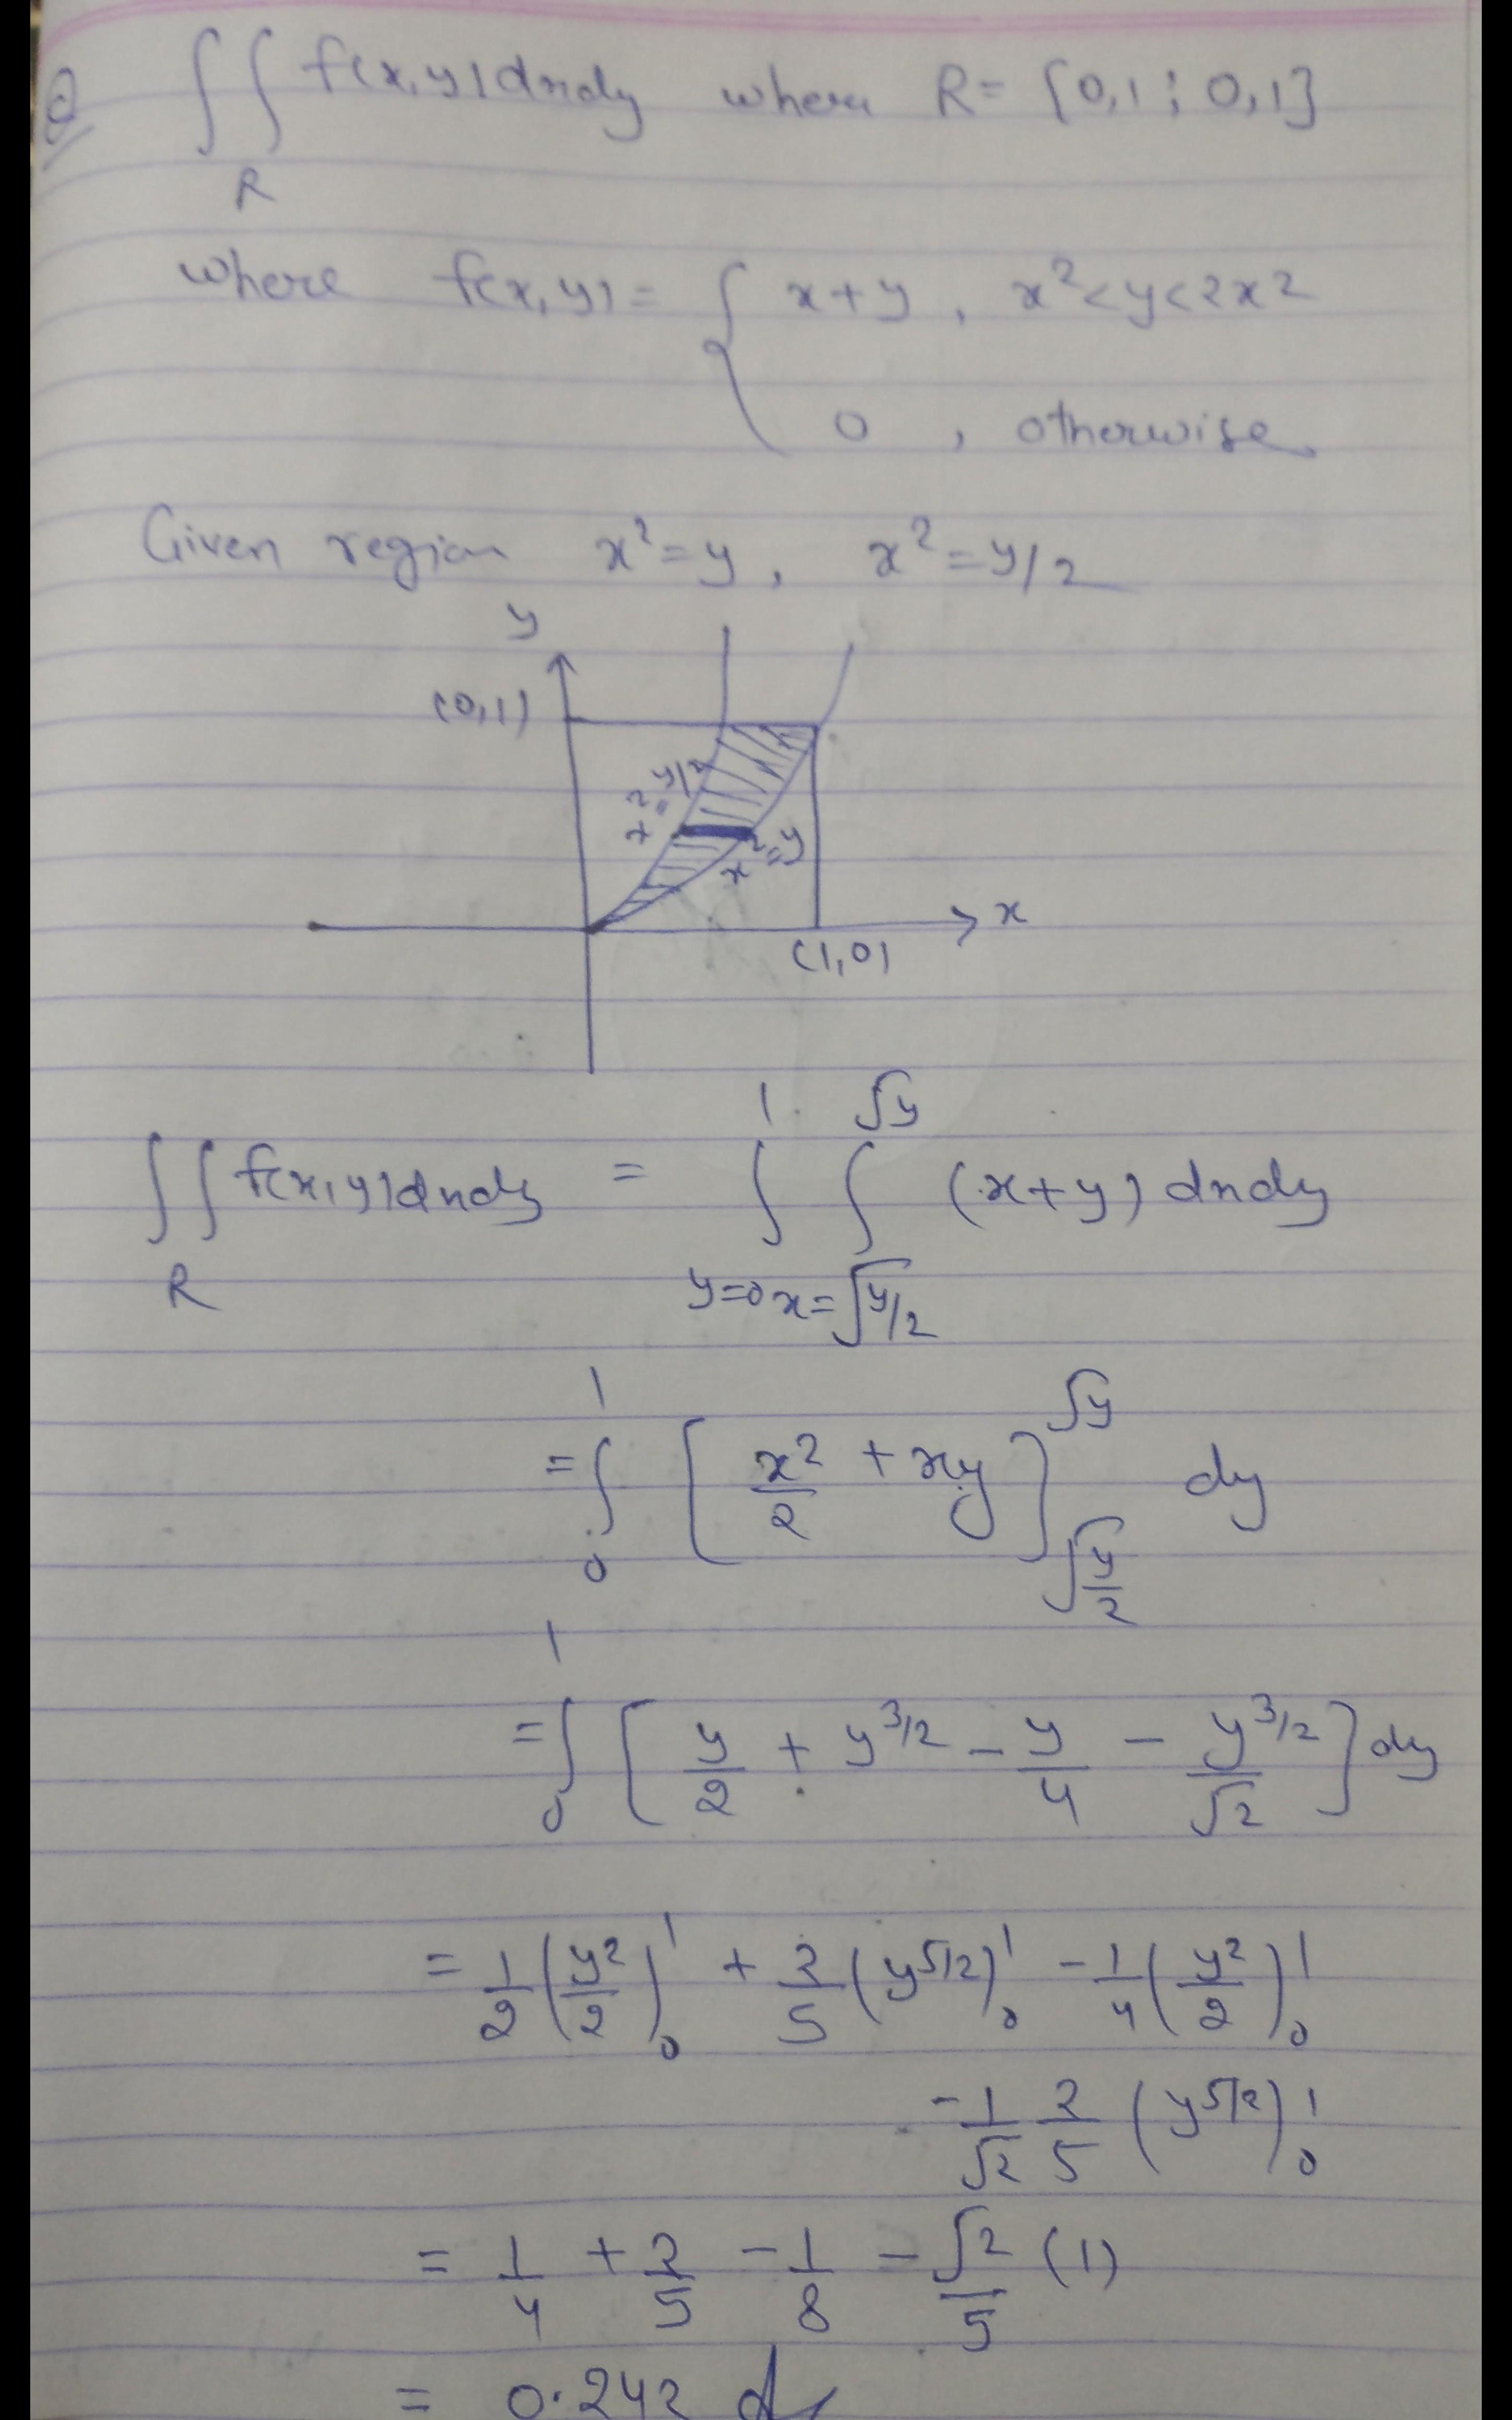 Q ∫∫ f(x,y)dxdy where R= [0,1; 0,1]
R
where f(x,y)= { x+y , x²<y<2x²
0 , otherwise
Given region x²=y, x²=y/2
y
(0,1)
x²=y/2
x²=y
x
(1,0)
∫∫_R f(x,y)dxdy = ∫_{y=0}^{1} ∫_{x=√y/2}^{√y} (x+y) dxdy
= ∫_0^1 [x²/2 + xy]_{√y/2}^{√y} dy
= ∫_0^1 [y/2 + y^3/2 - y/4 - y^3/2/√2] dy
= 1/2 (y²/2)_0^1 + 2/5 (y^5/2)_0^1 - 1/4 (y²/2)_0^1
- 1/√2 2/5 (y^5/2)_0^1
= 1/4 + 2/5 - 1/8 - √2/5 (1)
= 0.242